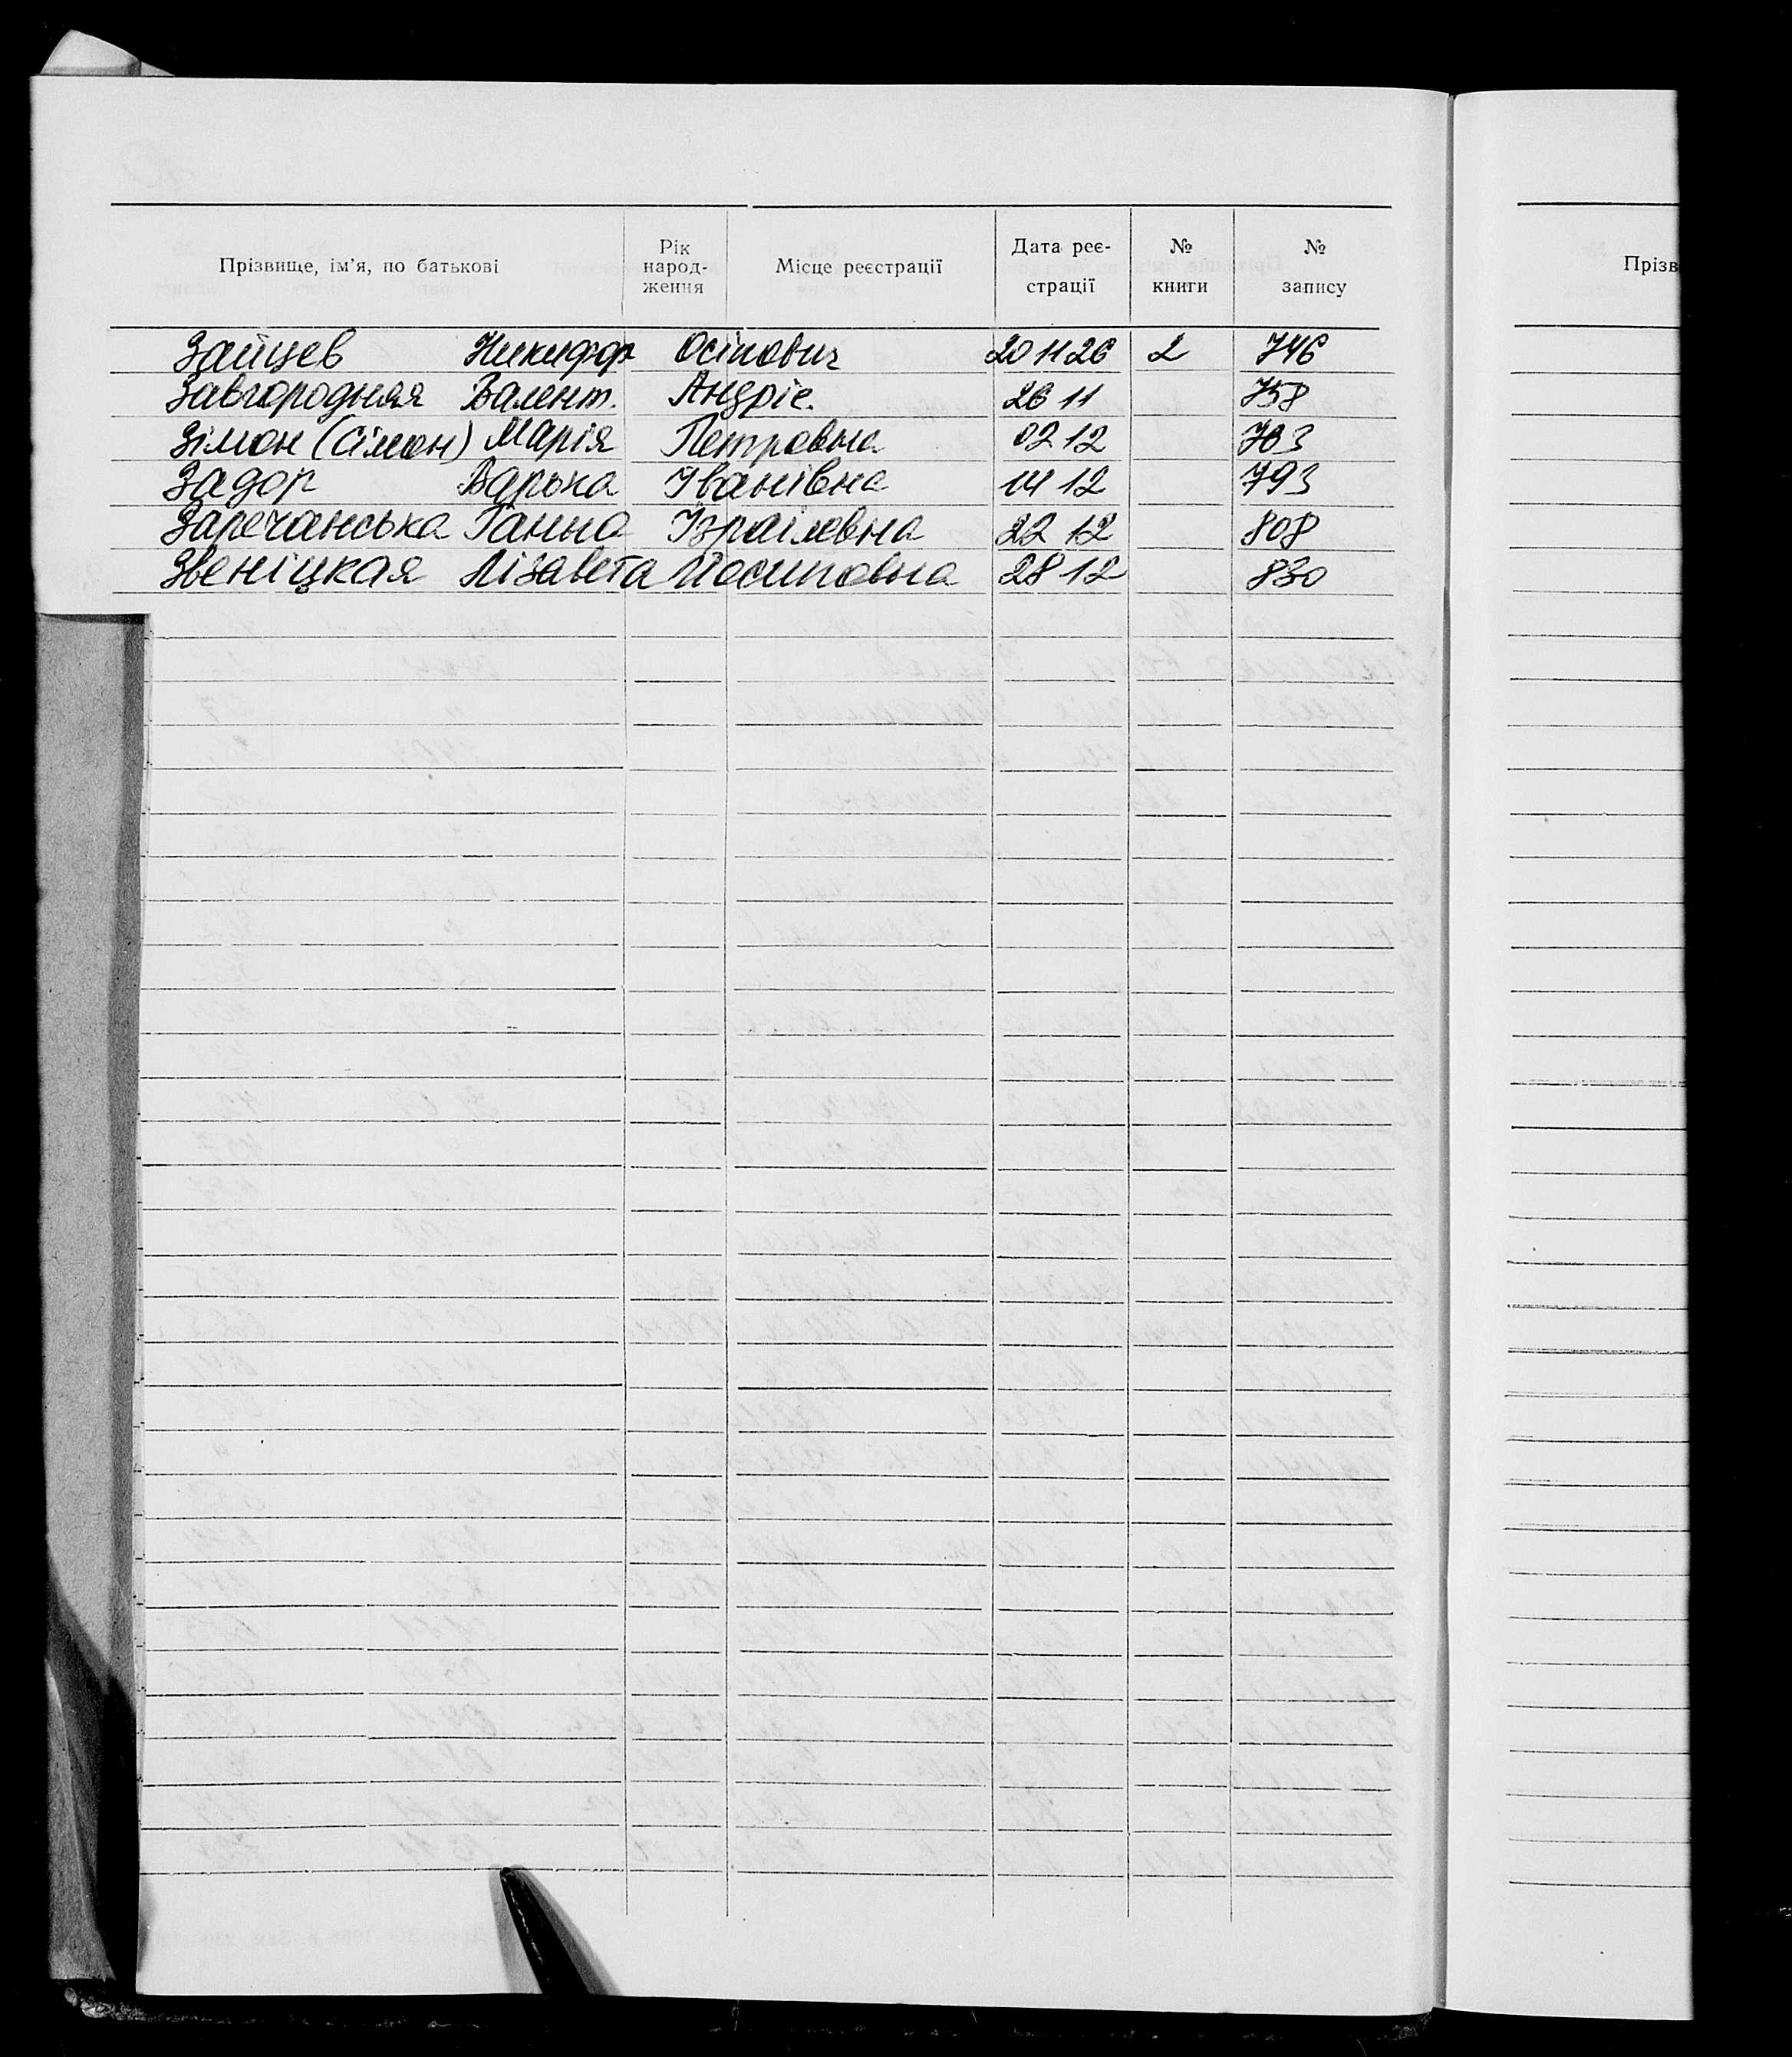 Прізвище, ім'я, по батькові Рік народ- ження Місце реєстрації Дата реє- страції № книги № запису Прізв
Зайцев Никифор Осіпович 20 11 26 2 746
Завгородняя Валент. Андріє. 26 11 758
Зімон (Сімон) Марія Петровна 02 12
Задор Варька Іванівна 14 12 793
Заречанська Ганна Ізраілевна 22 12 808
Звеніцкая Лізавета Йосиповна 28 12 830